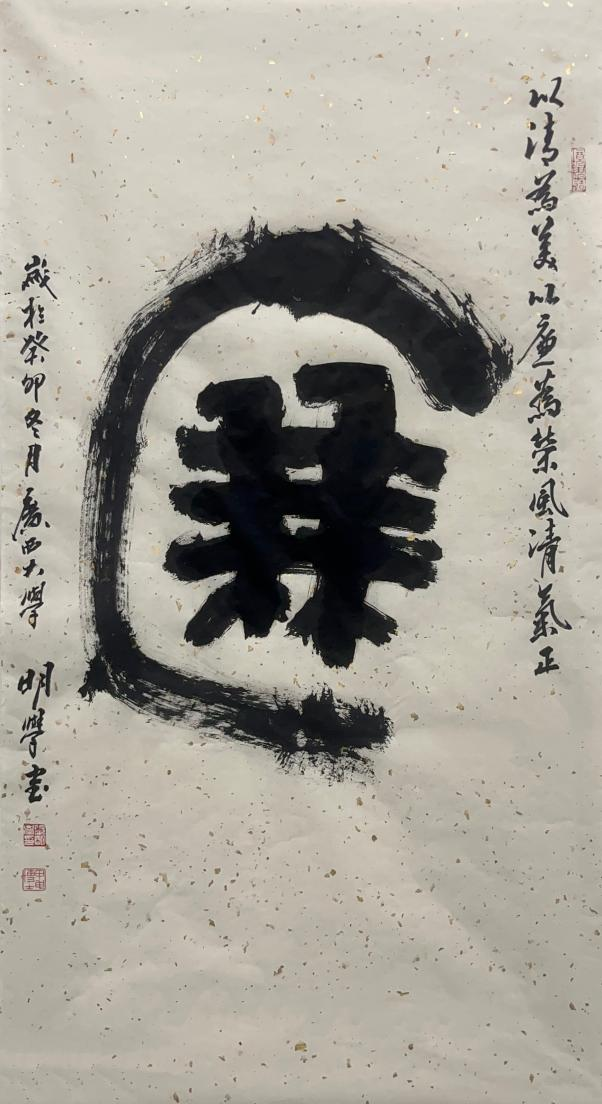 以清為美以廉為榮風清氣正
廉
歲於癸卯冬月廣西大學
明學書